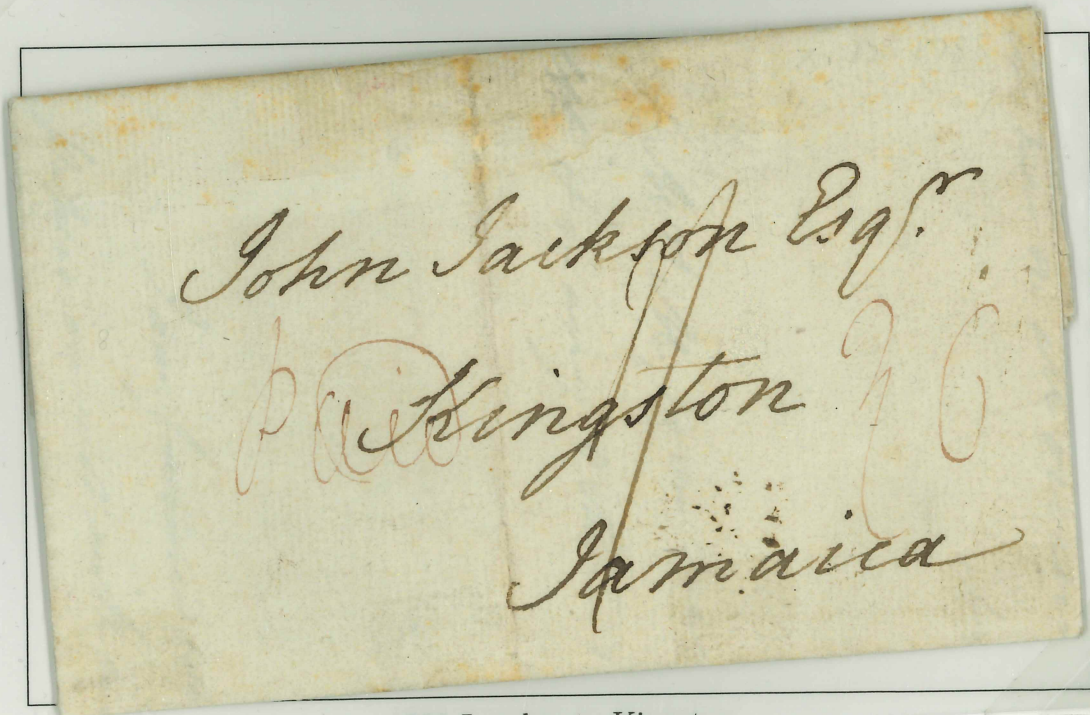 John Jackson Esqr.
Paid
Kingston
Jamaica